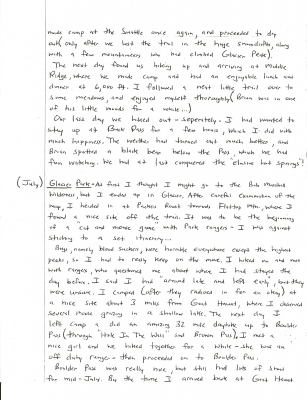 made camp at the Saddle once again, and proceeded to dry
out, only after we lost the trail in the huge snowdrifts, along
with a few mountaineers who had climbed Glacier Peak).
The next day found us hiking up and arriving at Middle
Ridge, where we made camp and had an enjoyable lunch and
dinner at 6,200 ft. I followed a neat little trail over to
some meadows, and enjoyed myself thoroughly (Brian was in one
of his little moods for a while...)
Our last day we hiked out - seperately. I had wanted to
stay up at Pass for a few hours, which I did with
much happiness. The weather had turned out much better, and
Brian spotted a black bear below the Pass, which we had
fun watching. We had at last conquered the "elusive hot springs"!
(July) Glacier Park - At first I thought I might go to the Bob Marshall
Wilderness, but I ended up in Glacier. After careful examination of the
map, I headed in at Packers Roost towards Flattop Mtn, where I
found a nice site off the trail. It was to be the beginning
of a "cat and mouse game" with Park rangers - I was against
sticking to a set itinerary...
Bugs, namely black suckers, were horrible everywhere except the highest
peaks, so I had to really keep on the move. I hiked on and met
with rangers, who questioned me about where I had stayed the
day before. I said I had around late and left early, but they
were unsure. I camped (after they radioed in for an okay) at
a nice site about 3 miles from Goat Haunt, where I observed
several moose grazing in a shallow lake. The next day I
left camp & did an amazing 32 mile dayhike up to Boulder
Pass (through "Hole In The Wall" and Brown Pass), I met a
nice girl and we hiked together for a while - she was an
off duty ranger - then proceeded on to Boulder Pass.
Boulder Pass was really nice, but still had lots of snow
for mid-July. By the time I arrived back at Goat Haunt